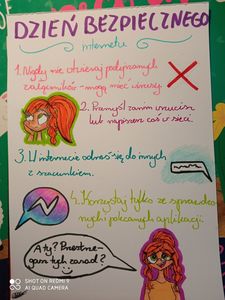 DZIEŃ BEZPIECZNEGO
internetu
1. Nigdy nie otwieraj podejrzanych
załączników - mogą mieć wirusy.
2. Pomyśl zanim wrzucisz
lub napiszesz coś w sieci.
3. W internecie odnoś się do innych
z szacunkiem.
4. Korzystaj tylko ze sprawdzo-
nych i polecanych aplikacji.
A ty? Przestrze-
gasz tych zasad?
SHOT ON REDMI 9
AI QUAD CAMERA